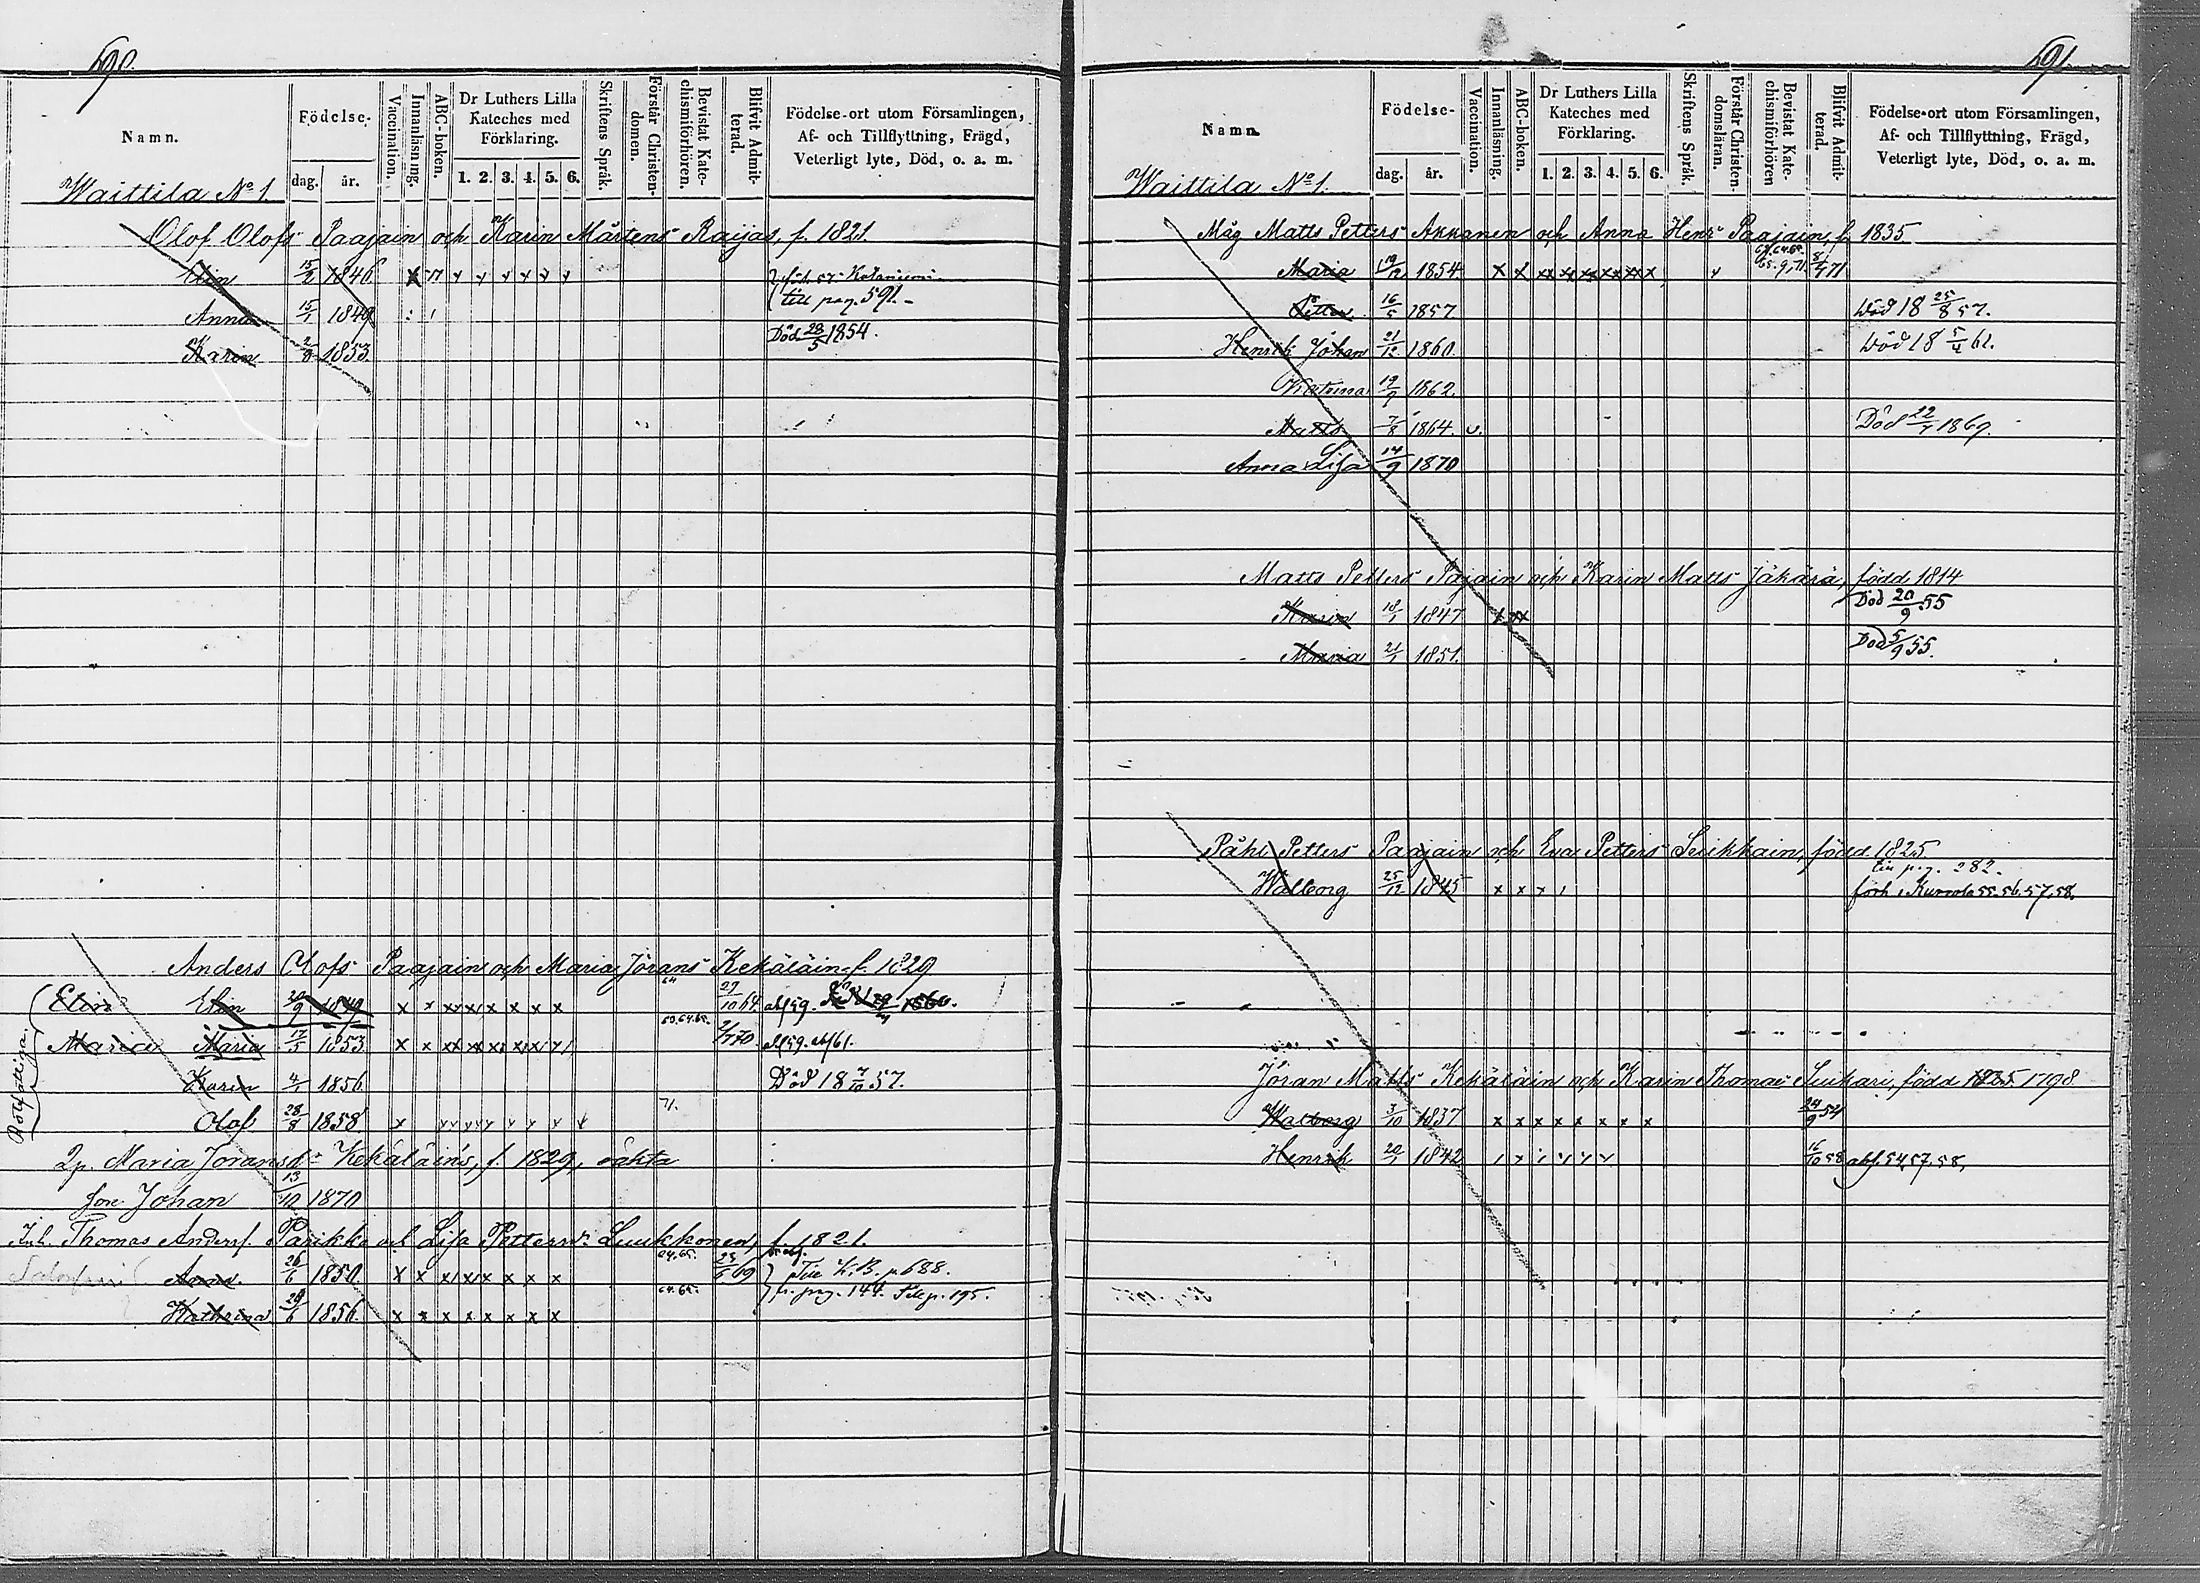 590.
Namn.
Födelse-
dag.
år.
Vaccination.
Innanläsning.
ABC-boken.
Dr Luthers Lilla
Kateches med
Förklaring.
1. 2. 3. 4. 5. 6.
Skriftens Språk.
Förstår Christen-
domen.
Bevistat Kate-
chismiförhören.
Blifvit Admit-
terad.
Födelse-ort utom Församlingen,
Af- och Tillflyttning, Frägd,
Veterligt lyte, Död, o. a. m.
Waittila No 1.
Olof Olofs Paajain och Karin Mårtens Raijas, f. 1821.
Elin 15/2 1846.
till pag. 591.
Anna 15/1 1849
Karin 2/8 1853 Död 28/5 1854.
Anders Olofs Paajain och Maria Jörans Kekäläin f. 1829
Elin Elin 20/9 1849 x x xx xx x x x x 64 27/10 64 abs 59.
Maria Maria 17/3 1853 63.64.65. 2/7 70 abs 59. abs 61.
Karin 4/1 1856 Död 18 7/10 57.
Olof 28/8 1858 71.
Maria Joransdr Kekäläins, f. 1829, oäkta
son Johan 13/10 1870
Inh. Thomas Anderss. Parikka och Lisa Pettersdr Luukkonen, f. 1821.
Anna 26/6 1850. 64.65. 23/6 69 Till K.B. p. 688.
Kathrina 29/6 1856. x x x x x x x x 64.65. fr. pag. 144. Till p. 195.
591.
Namn.
Födelse-
dag.
år.
Vaccination.
Innanläsning.
ABC-boken.
Dr Luthers Lilla
Kateches med
Förklaring.
1. 2. 3. 4. 5. 6.
Skriftens Språk.
Förstår Christen-
domsläran.
Bevistat Kate-
chismiförhören
Blifvit Admit-
terad.
Födelse-ort utom Församlingen,
Af- och Tillflyttning, Frägd,
Veterligt lyte, Död, o. a. m.
Waittila No 1.
Måg Matts Petters Akkanen och Anna Henrs Paajain, f. 1835
Maria 19/12 1854
Petter 16/5 1857 Död 18 25/8 57.
Henrik Johan 21/12 1860 Död 18 5/4 61.
Katrina 19/9 1862.
Matts 7/8 1864. v. Död 22/1 1869.
Anna Lisa 14/9 1870
Matts Petters Pajain och Karin Matts Jäkärä, född 1814
Karin 18/1 1847 Död 20/9 55
Maria 21/1 1851. Död 5/9 55.
Påhl Petters Paajain och Eva Petters Seikkain, född 1825
till pag. 282.
Walborg 25/12 1845 x x x förh. i Kurvola 55. 56. 57. 58.
Jöran Matts Kekäläin och Karin Thomas Suikari, född 1798
Walborg 3/10 1837 x x x x x x x x 24/9 54
Henrik 20/1 1842 16/10 58 abs. 54, 57. 58,